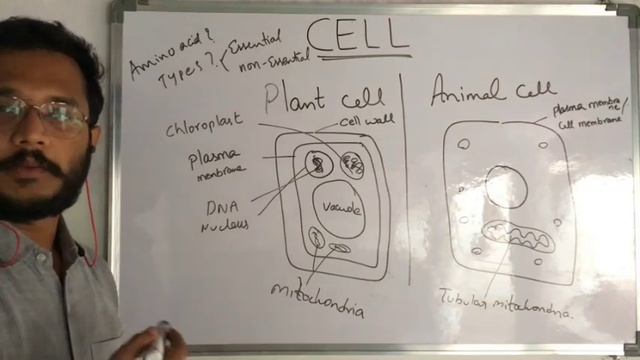 CELL
Amino acid?
Types?
Essential
non-Essential
Plant cell
Chloroplast
cell wall
plasma
membrane
DNA
Nucleus
Vacuole
Mitochondria
Animal Cell
plasma membrane/
Cell membrane
Tubular mitochondria.